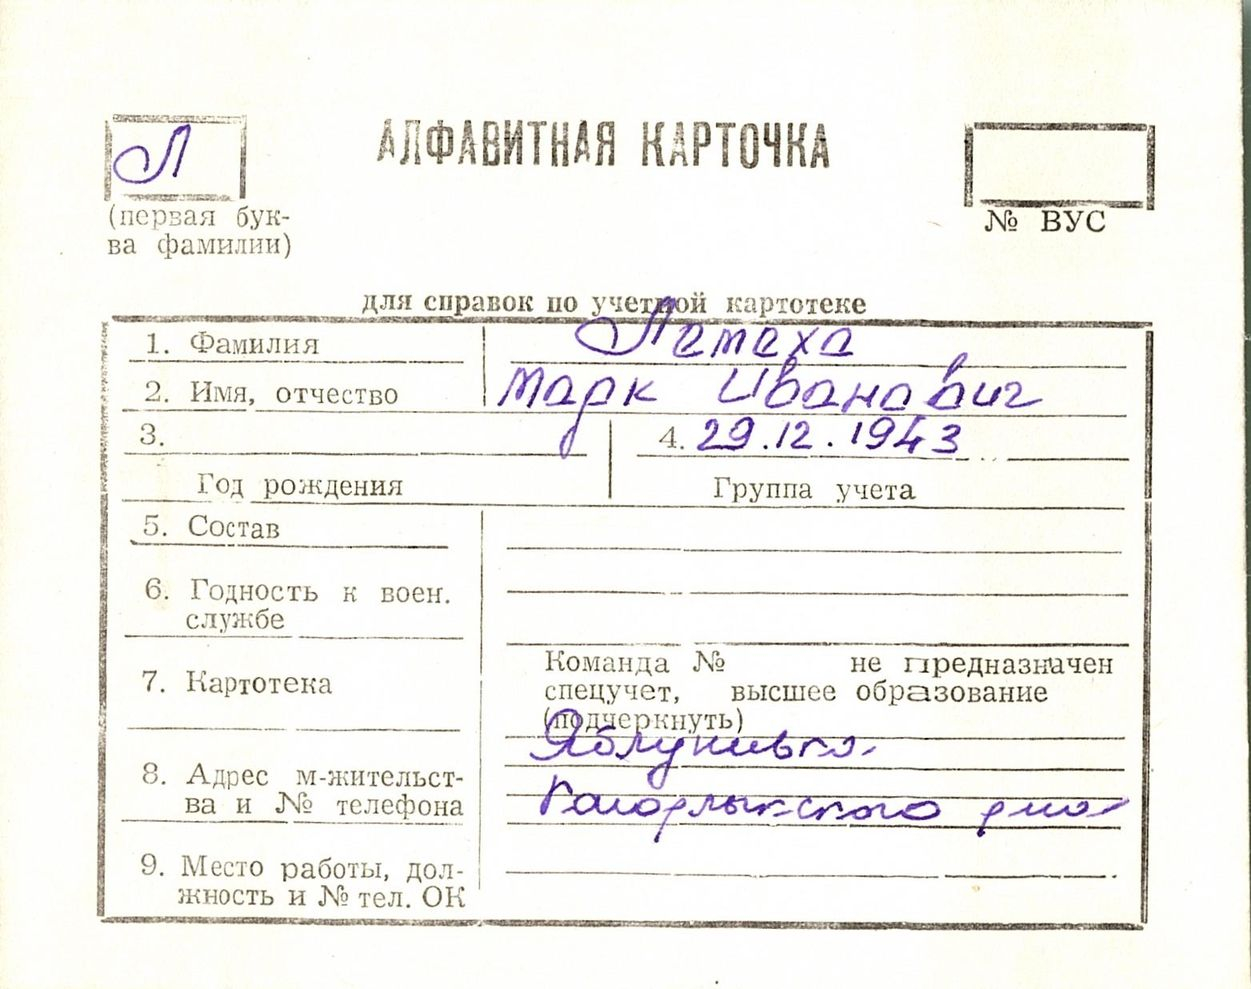 Л
АЛФАВИТНАЯ КАРТОЧКА
(первая бук-
ва фамилии)
№ ВУС
для справок по учетной картотеке
1. Фамилия Летеха
2. Имя, отчество Марк Иванович
3. 4. 29.12.1943
Год рождения Группа учета
5. Состав
6. Годность к воен.
службе
7. Картотека
Команда № не предназначен
спецучет, высшее образование
(подчеркнуть)
8. Адрес м-жительст-
ва и № телефона
Кагарлыкского
9. Место работы, дол-
жность и № тел. ОК